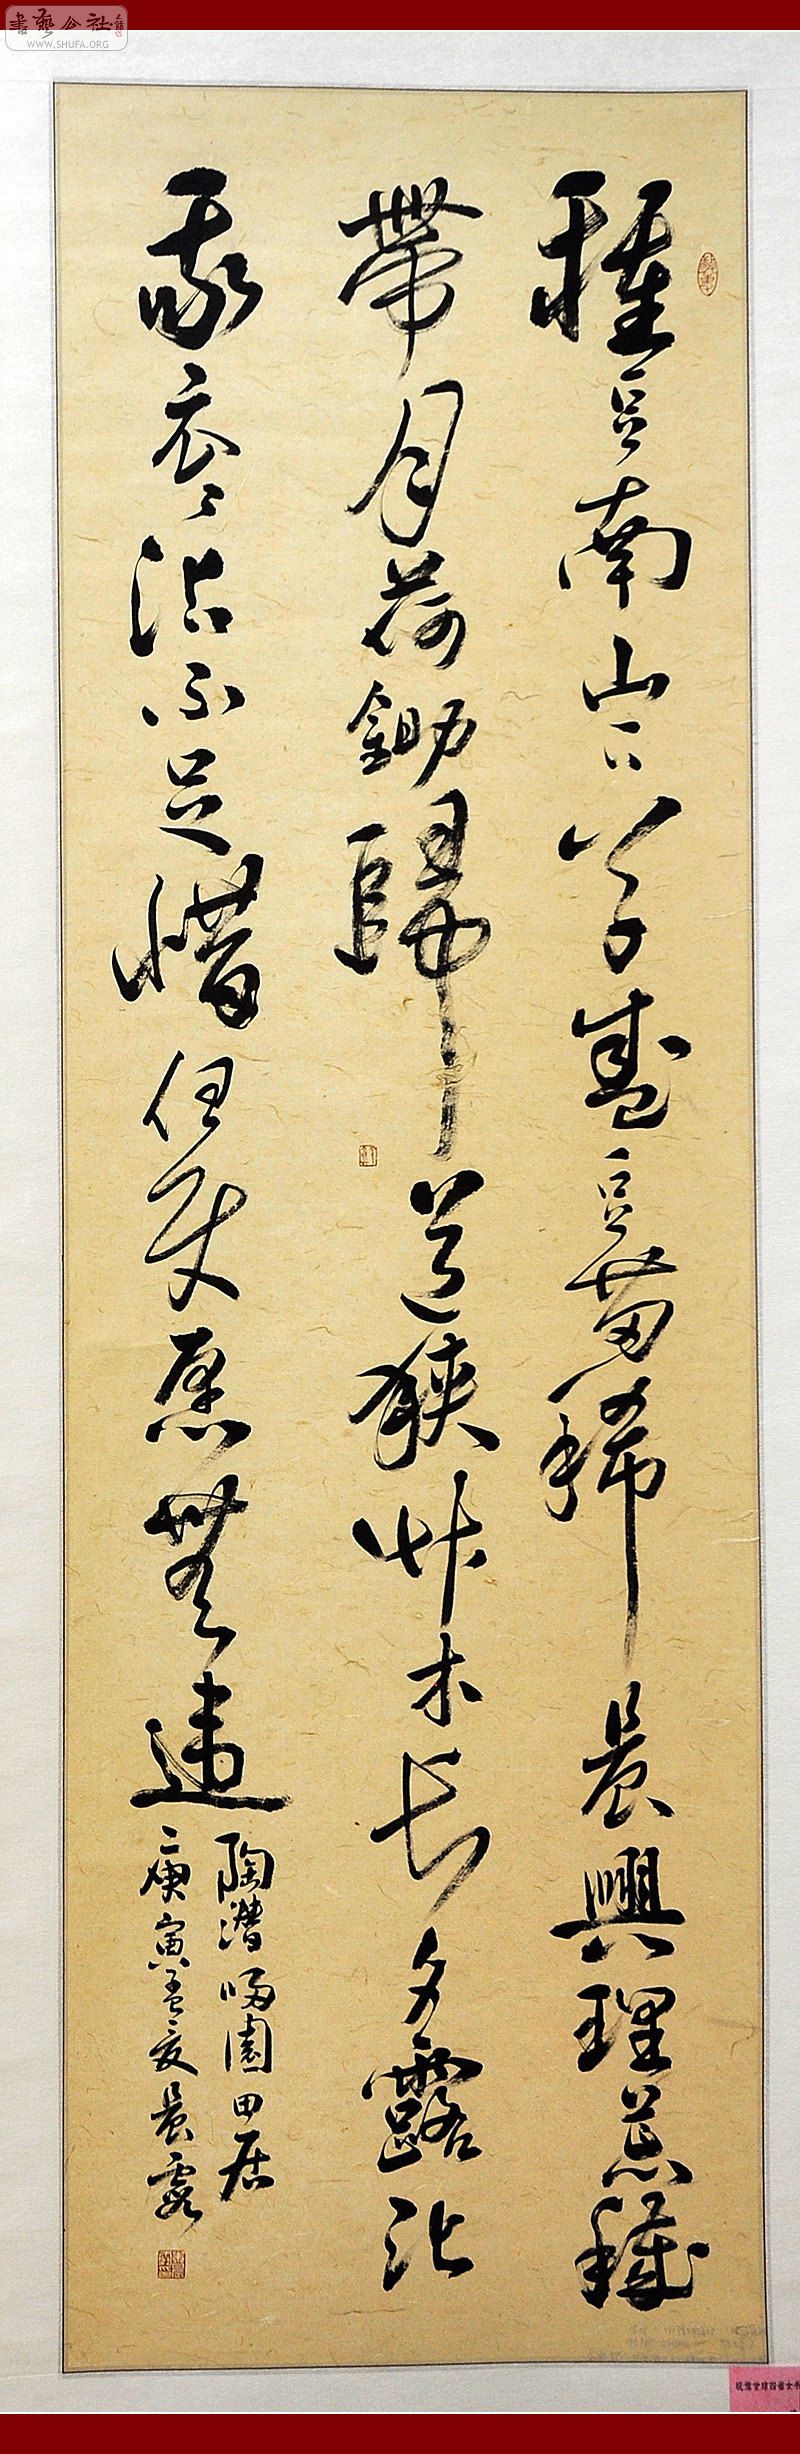 書藝公社
WWW.SHUFA.ORG
種豆南山下草盛豆苗稀晨興理荒穢
帶月荷鋤歸道狹艸木長夕露沾
我衣衣沾不足惜但使願無違
陶潛歸園田居
庚寅孟夏晨露